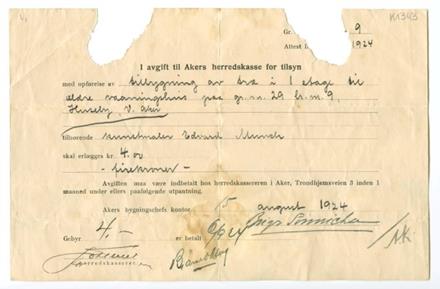 K1343
Gr. 9
Attest 1924
I avgift til Akers herredskasse for tilsyn
med opførelse av tilbygning av træ i 1 etage til
ældre vaaningshus paa gr. n. 29 br. n. 9,
Huseby, V. Aker
tilhørende kunstmaler Edvard Munch
skal erlægges kr. 4.00
- firekroner -
Avgiften maa være indbetalt hos herredskassereren i Aker, Trondhjemsveien 3 inden 1
maaned under ellers paafølgende utpantning.
Akers bygningschefs kontor 5 august 1924
Gebyr 4,- er betalt
herredskasserer
/AK.